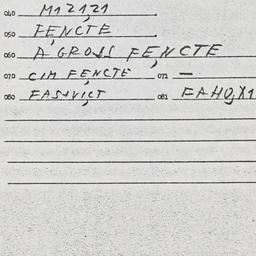 040 M1Z1,21
050 FE,NCTE
060 A GROSS FE,NCTE
070 CIM FE,NCTE 071 —
080 FASIVI,CT 081 EAHO,X1